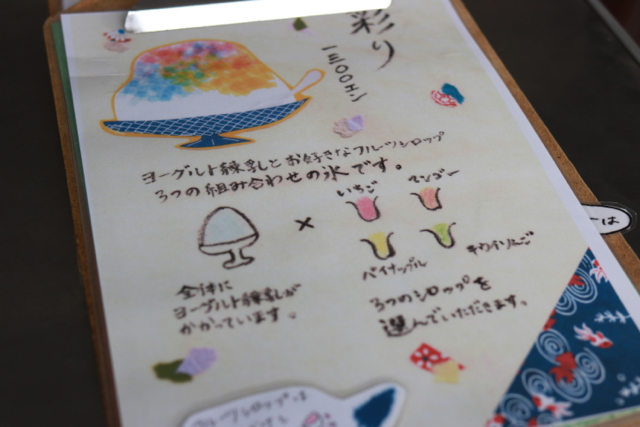 彩り
一三〇〇エン
ヨーグルト練乳とお好きなフルーツシロップ
3つの組み合わせの氷です。
いちご
マンゴー
×
パイナップル
キウイりんご
全体に
ヨーグルト練乳が
かかっています。
3つのシロップを
選んでいただきます。
フルーツシロップは
ーは